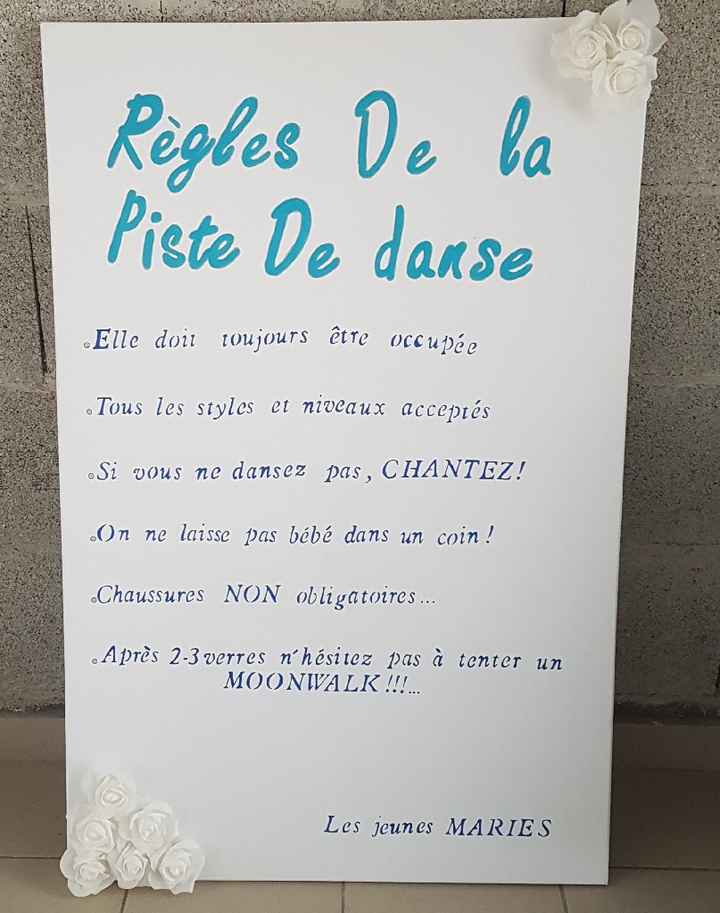 Règles De la
Piste De danse
Elle doit toujours être occupée
Tous les styles et niveaux acceptés
Si vous ne dansez pas, CHANTEZ!
On ne laisse pas bébé dans un coin!
Chaussures NON obligatoires...
Après 2-3 verres n'hésitez pas à tenter un
MOONWALK!!!...
Les jeunes MARIES